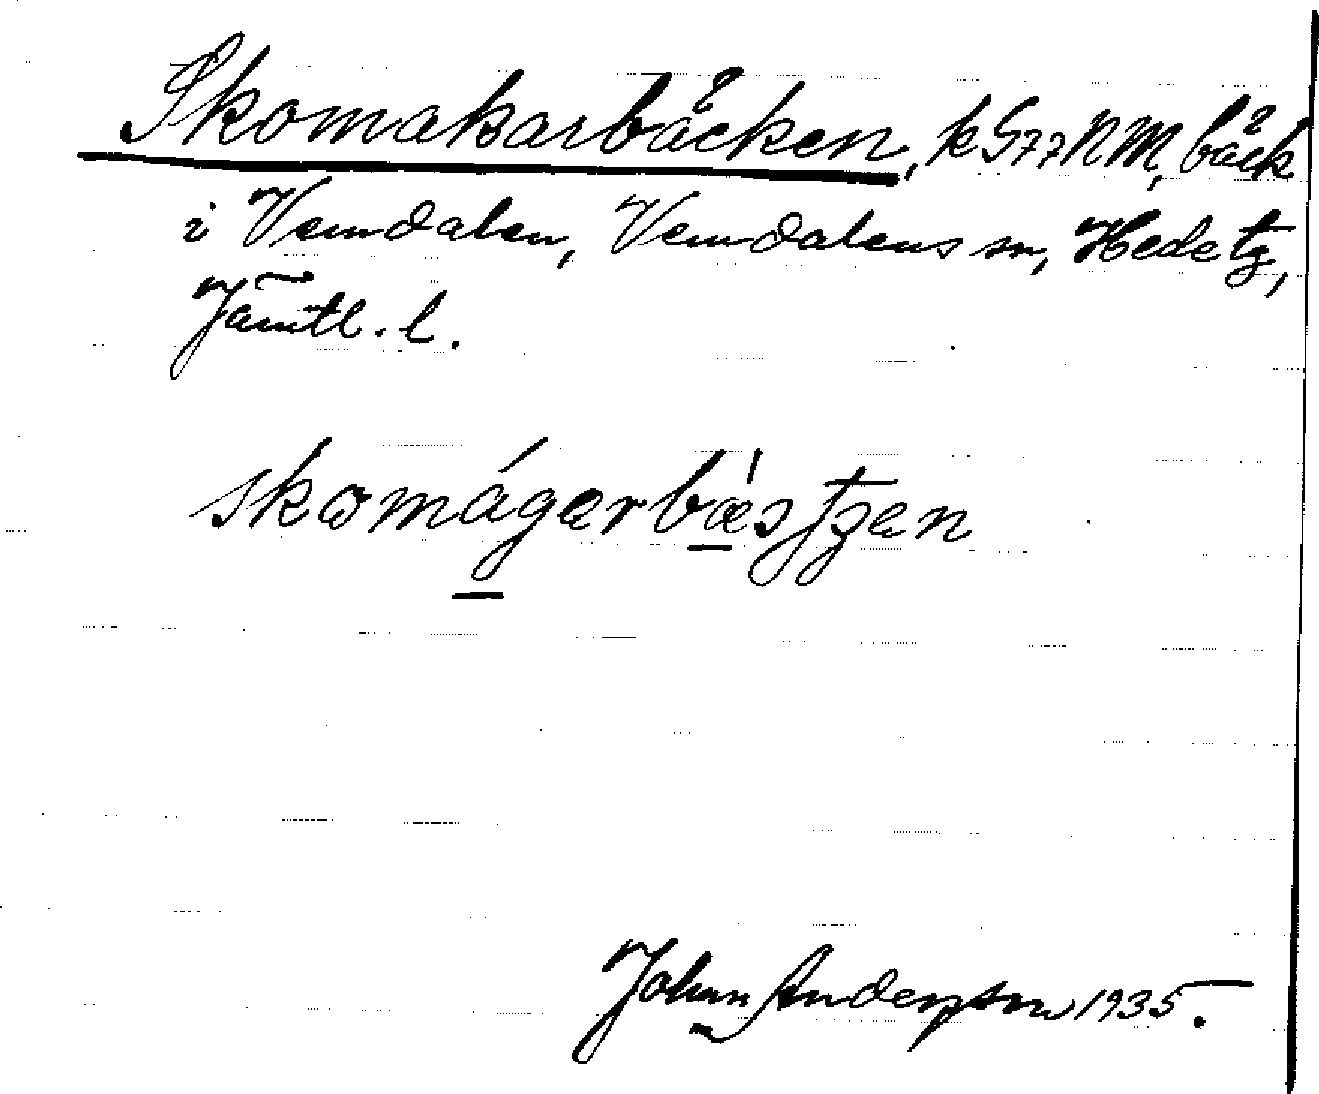 Skomakarbäcken, k G77 NM, bäck
i Vemdalen, Vemdalens sn, Hede tg,
Jämtl. l.
skomágarbæ̀stzen
Johan Anderson 1935.